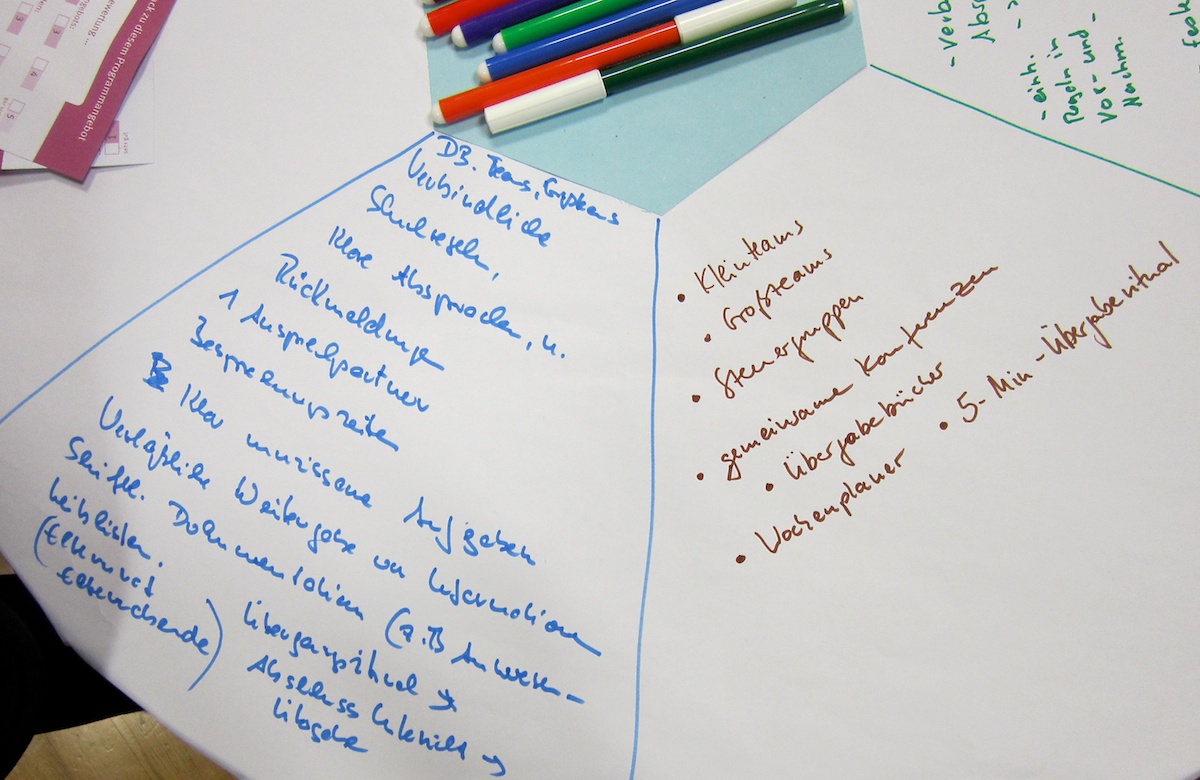 ck zu diesem Programmangebot
ewertung...
3
3
4
5
DB. Teams,
Verbindliche
Schulregeln,
Klare Absprachen, u.
Rückmeldungen
1 Ansprechpartner
Besprechungszeiten
Klar umrissene Aufgaben
Verläßliche Weitergabe von Informationen
Schriftl. Dokumentation (z.B Anwesen-
heitslisten.
(Elternrat
Elternabende)
Übergangsritual →
Abschluss Unterricht →
• Kleinteams
• Großteams
• Steuergruppen
• gemeinsame Konferenzen
• Übergabebücher
• 5-Min-Übergaberitual
• Wochenplaner
- Verb
Abs
- einh.
Regeln in
Vor- und -
Nachm.